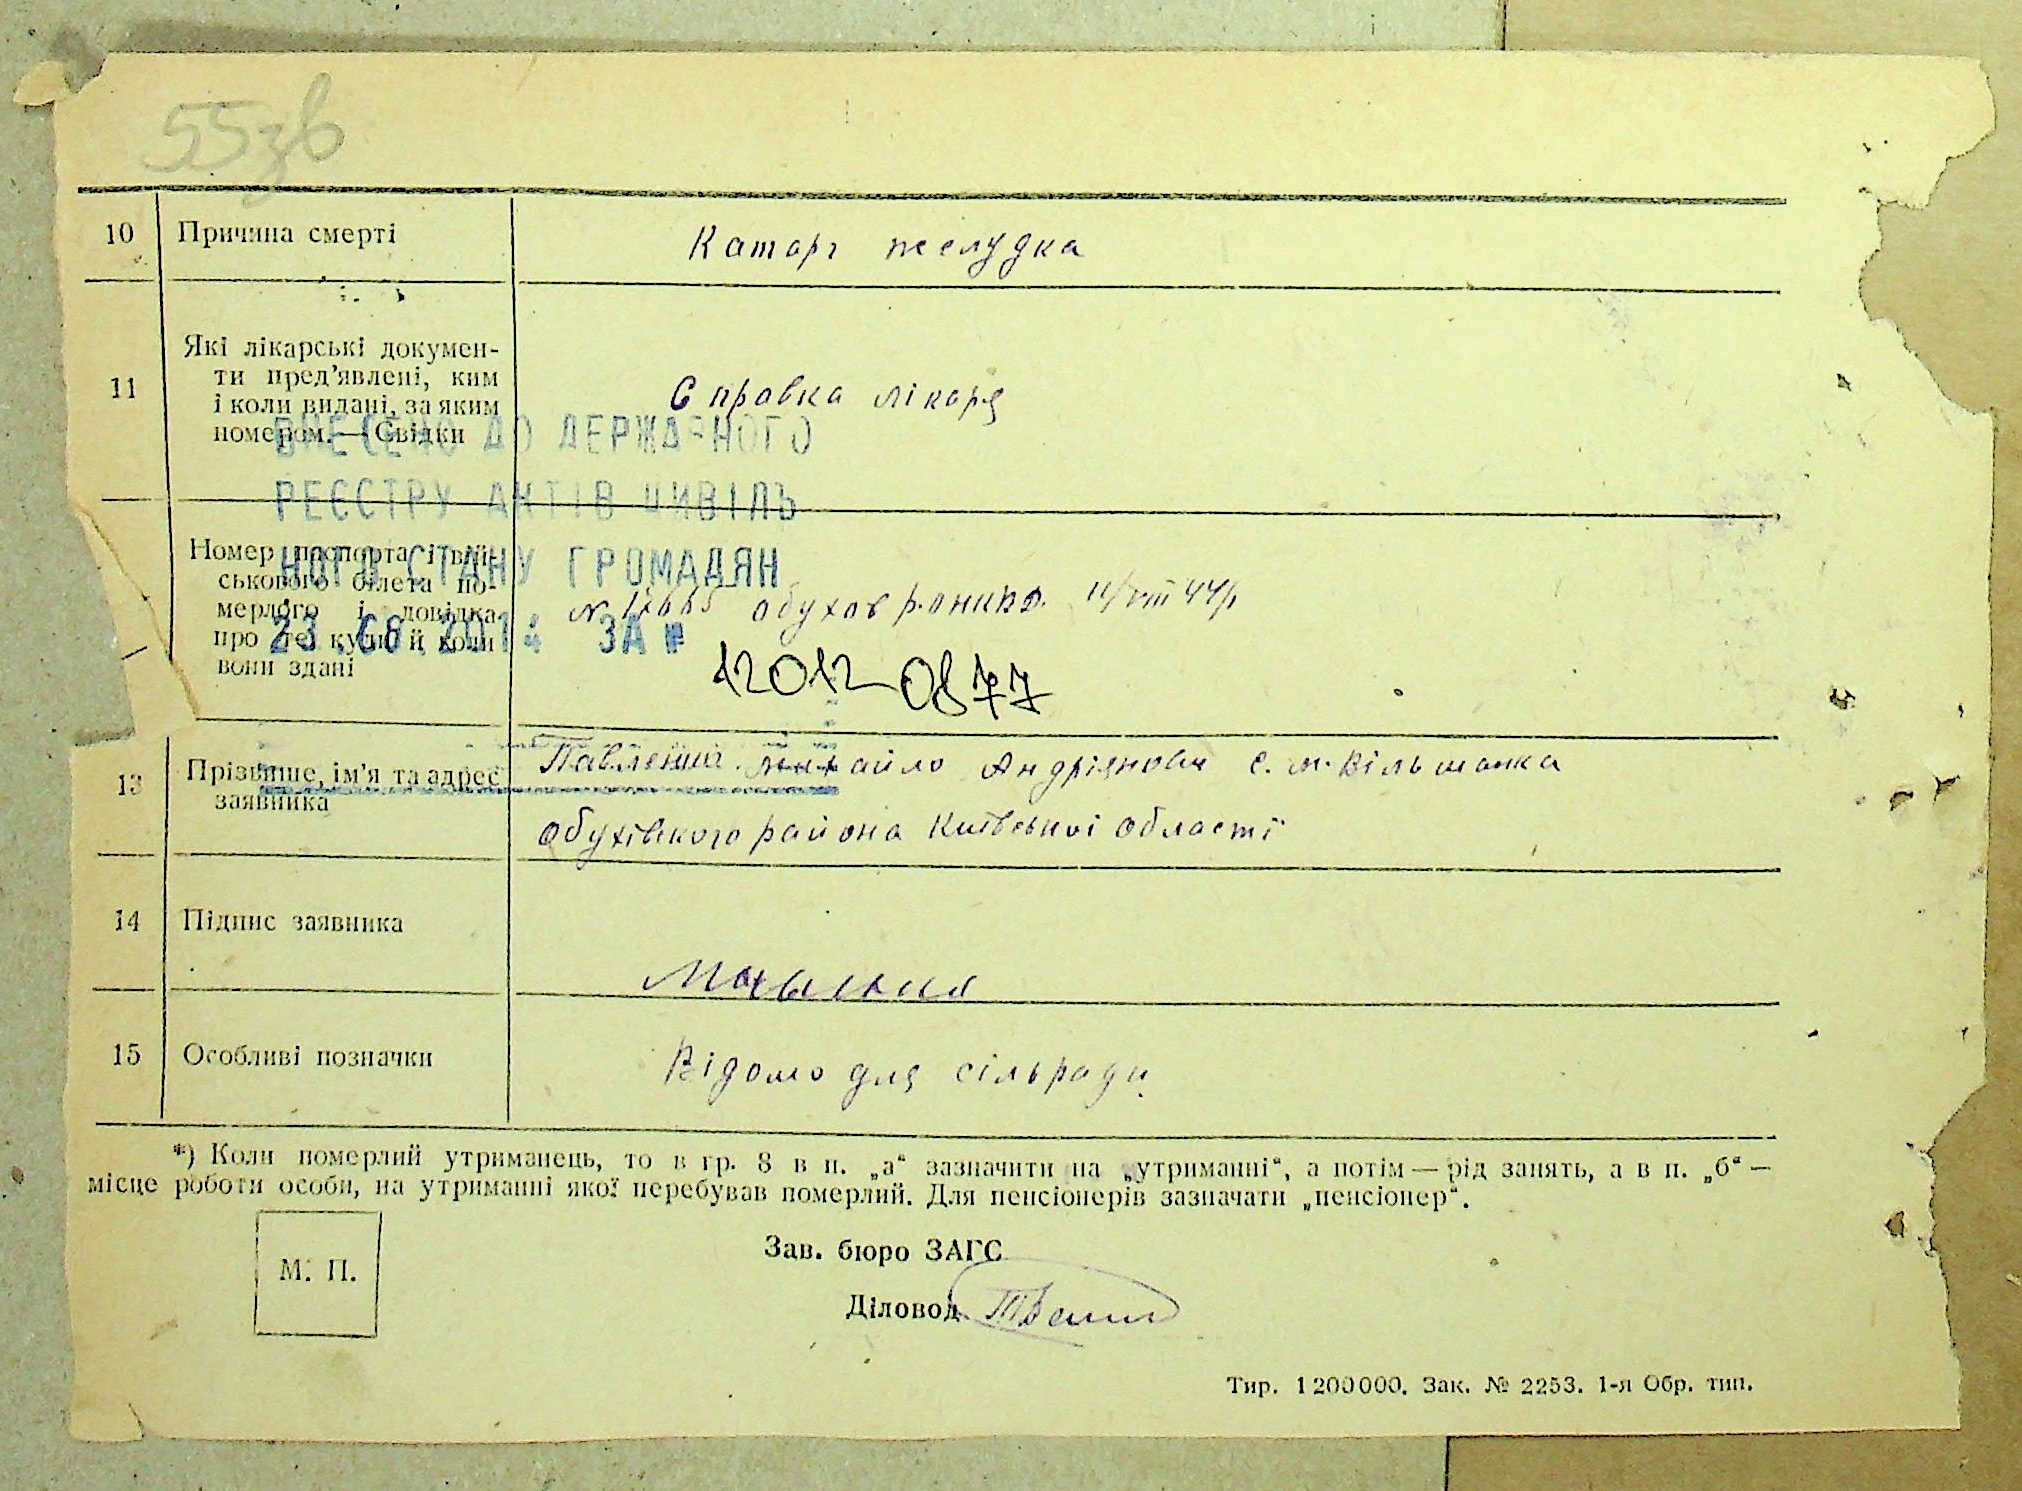 55зв
10 Причина смерті Катарг желудка
11 Які лікарські докумен-
ти пред'явлені, ким
і коли видані, за яким
номером.—Свідки
Справка лікаря
ВНЕСЕНО ДО ДЕРЖАВНОГО
РЕЄСТРУ АКТІВ ЦИВІЛЬ
НОГО СТАНУ ГРОМАДЯН
23.08.2014 ЗА №
12012 0877
Номер паспорта і вій-
ськового білета по-
мерлого і довідка
про те, куди й коли
вони здані
Обухов
13 Прізвище, ім'я та адрес
заявника
Михайло Андріянович с. м. Вільшанка
Обухівского района Київської області
14 Підпис заявника
15 Особливі позначки Відомо для сільради
*) Коли померлий утриманець, то в гр. 8 в п. „а“ зазначити на „утриманні“, а потім — рід занять, а в п. „б“ —
місце роботи особи, на утриманні якої перебував померлий. Для пенсіонерів зазначати „пенсіонер“.
М. П.
Зав. бюро ЗАГС
Діловод
Тир. 1200000. Зак. № 2253. 1-я Обр. тип.